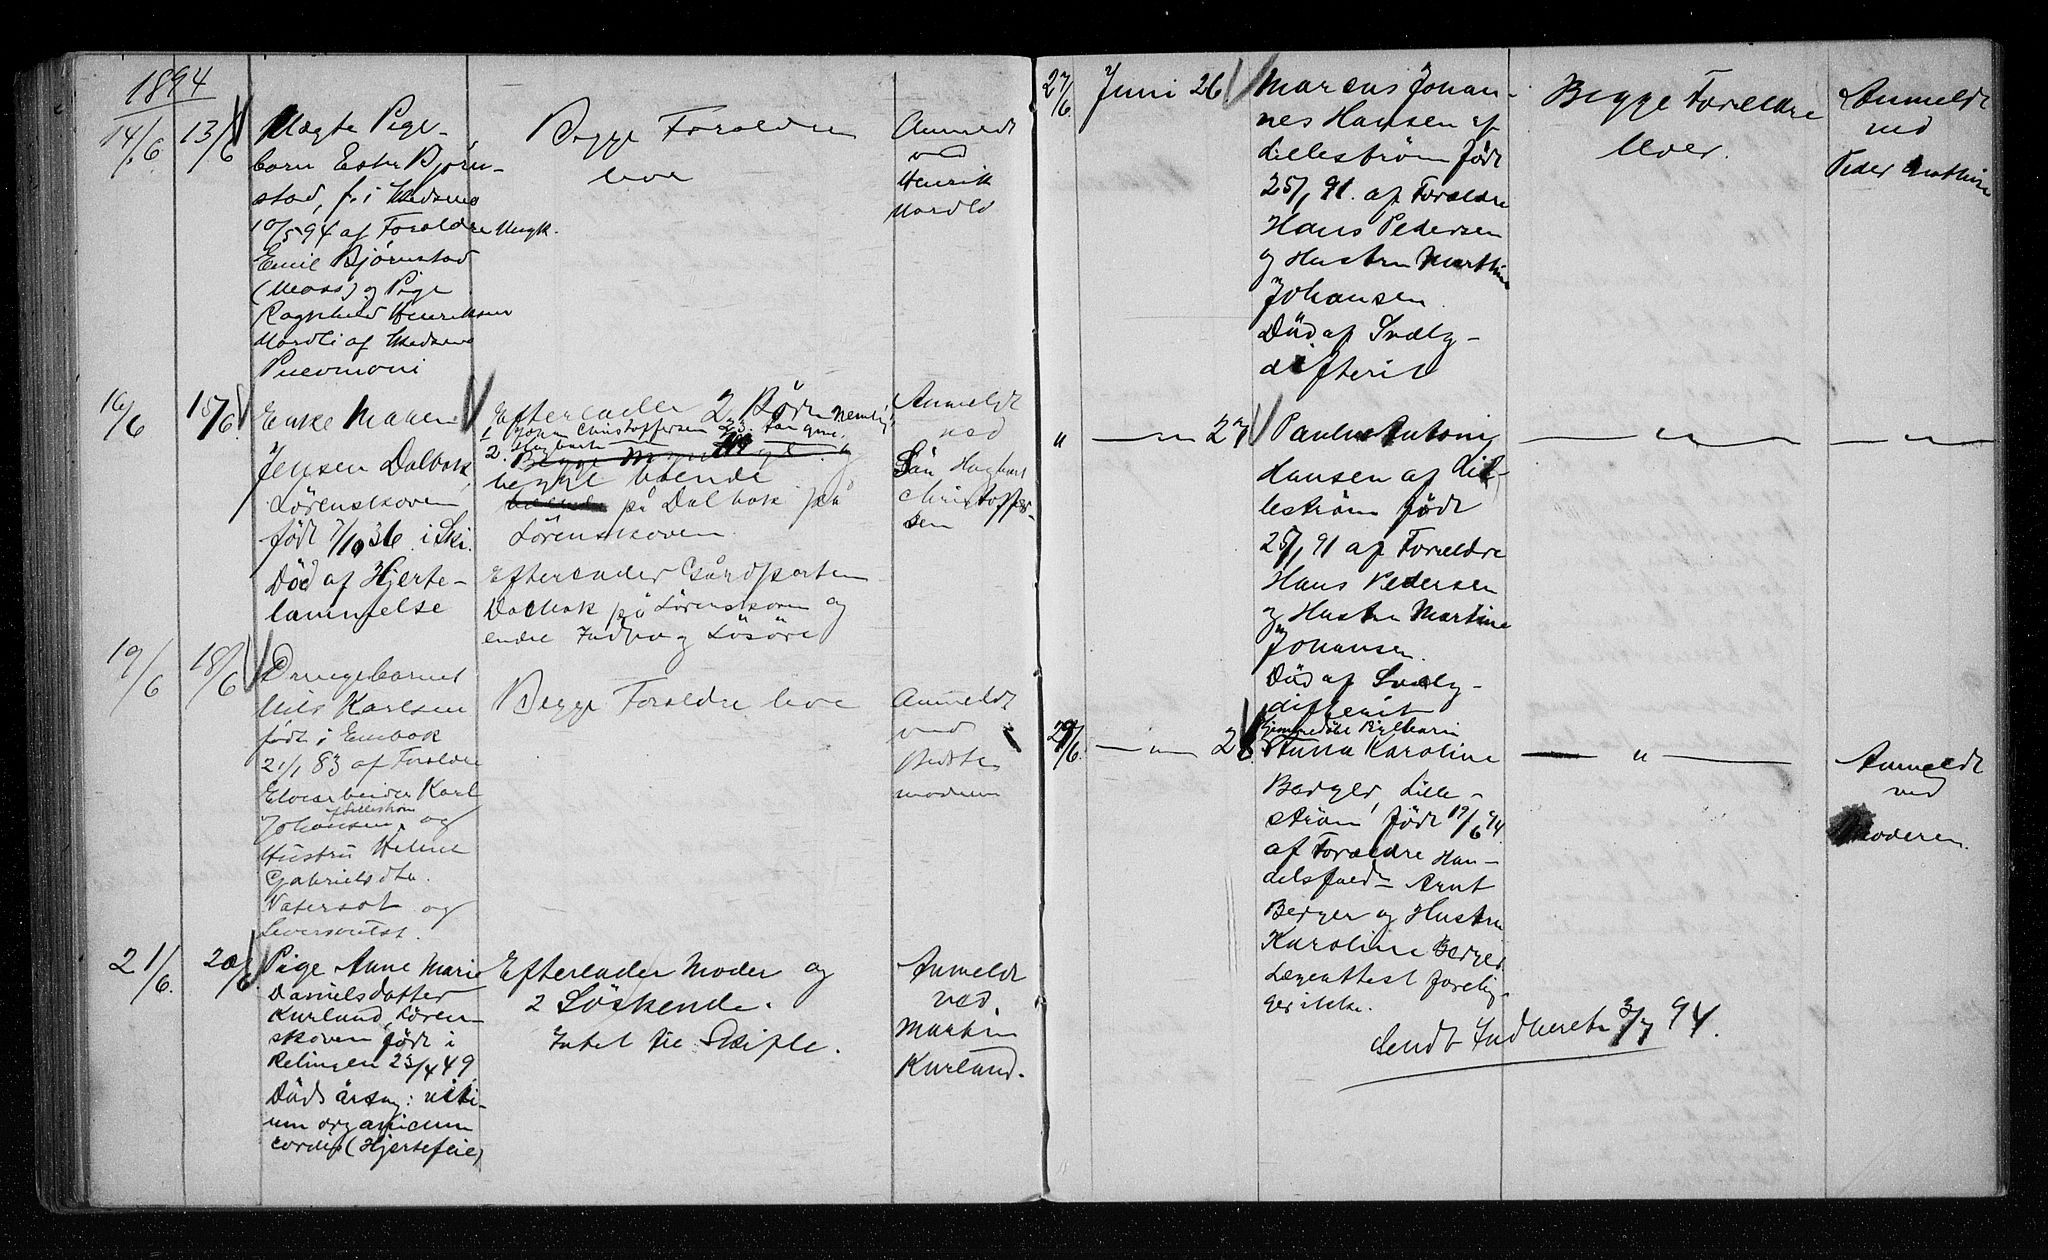 1894
14/6 13/6
Uægte Pige-
barn Ester Bjørn-
stad, f. i Hedsmo
10/5 94 af Forældre Ungk.
Emil Bjørnstad
(Moss) og Pige
Ragnhild Henriksen
Nordli af Hedsmo
Pnevmoni
Begge Forældre
leve
Anmeldt
ved
Henrik
Nordli
16/6 15/6
Enke Maren
Jensen Dalbak,
Lørenskoven
født 7/10 36 i Ski.
Død af Hjerte-
lammelse
Efterlader 2 Börn nemlig
1. Johan Christoffersen 23.
2. Hagbart
begge boende
på Dalbak på
Lørenskoven.
Efterlader Gårdparten
Dalbak på Lörenskoven og
endel Indbo og Lösöre
Anmeldt
ved
Sön Hagbart
Christoffer-
sen
19/6 18/6
Drengebarnet
Nils Karlsen
født i Enebak
21/1 83 af Forældre
Elvearbeider Karl
af Lilleström
Johansen og
Hustru Helene
Gabrielsdtr.
Vatersot og
Leversvulst.
Begge Forældre leve
Anmeldt
ved
Bedste
moderen
21/6. 20/6
Pige Anne Marie
Danielsdatter
Kurland, Lören-
skoven født i
Relingen 23/4 49
Dödsårsag: viti-
um organicum
cordis (Hjertefeil)
Efterlader Moder og
2 Söskende.
Intet til Skifte.
Anmeldt
ved
Martin
Kurland.
27/6. Juni 26
Marcus Johan-
nes Hansen af
Lilleström født
25/1 91. af Forældre
Hans Pedersen
og Hustru Marthine
Johansen.
Död af Svælg-
difterit
Begge Forældre
lever.
Anmeldt
ved
Peder Anthine
" — " — 27
Paul Antonig
Hansen af Lil-
leström født
25/1 91 af Forældre
Hans Pedersen
og Hustru Martine
Johansen.
Död af Svælg-
difterit
— " —
29/6. — " — 28
Hjemmedöbt Pigebarn
Anna Karoline
Berger, Lille-
ström født 19/6 94
af Forældre Han-
delsfuldm Arnt
Berger og Hustru
Karoline Berger.
Lægeattest forelig-
ger ikke.
— " —
Anmeldt
ved
Moderen.
Sendt Indberetn 3/7 94.